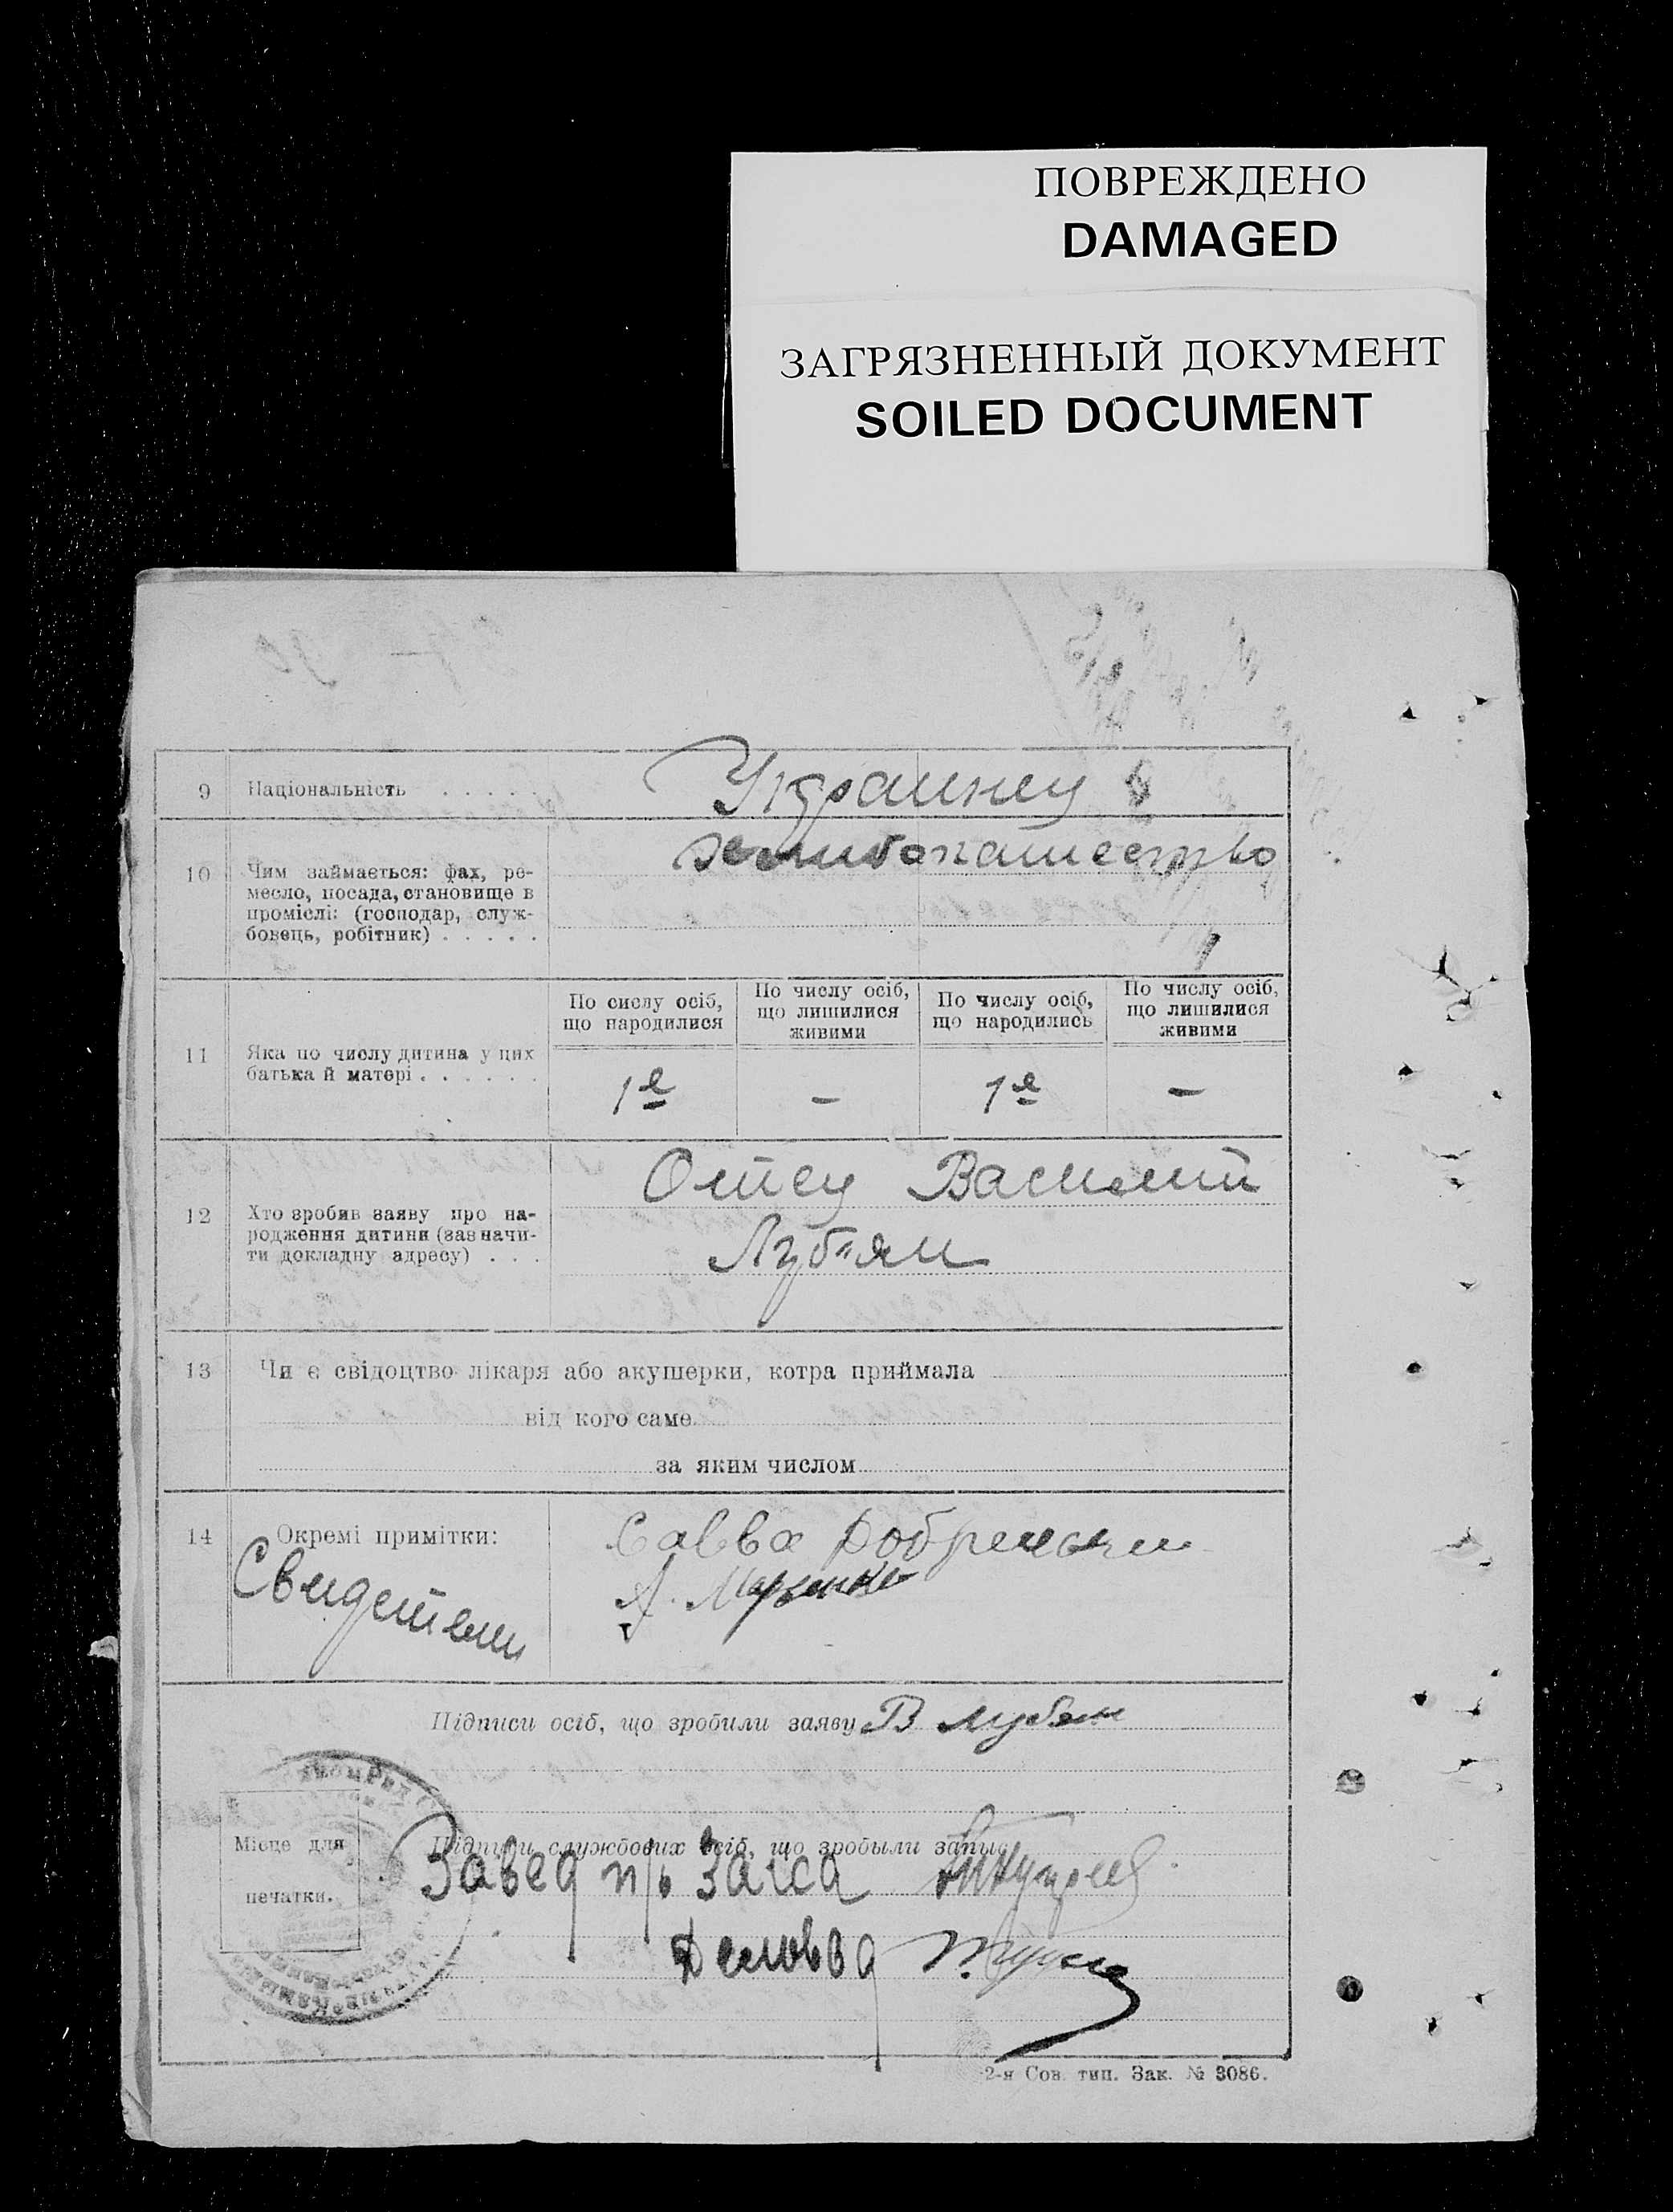 ПОВРЕЖДЕНО
DAMAGED
ЗАГРЯЗНЕННЫЙ ДОКУМЕНТ
SOILED DOCUMENT
9 Національність . . . . . Украинец
10 Чим займається: фах, ре-
месло, посада, становище в
промислі: (господар, служ-
бовець, робітник) . . . . .
По сислу осіб,
що народилися
По числу осіб,
що лишилися
живими
По числу осіб,
що народились
По числу осіб,
що лишилися
живими
11 Яка по числу дитина у цих
батька й матері . . . . . .
1е — 1е —
12 Хто зробив заяву про на-
родження дитини (зазначи-
ти докладну адресу) . . .
Отец Василий
Луб"ян
13 Чи є свідоцтво лікаря або акушерки, котра приймала
від кого саме
за яким числом
14 Окремі примітки:
Свидетели
Савва
А.
Підписи осіб, що зробили заяву В
Місце для
печатки.
Підписи службових осіб, що зробыли запис
Завед п/ь Загса
Деловод
2-я Сов. тип. Зак. № 3086.